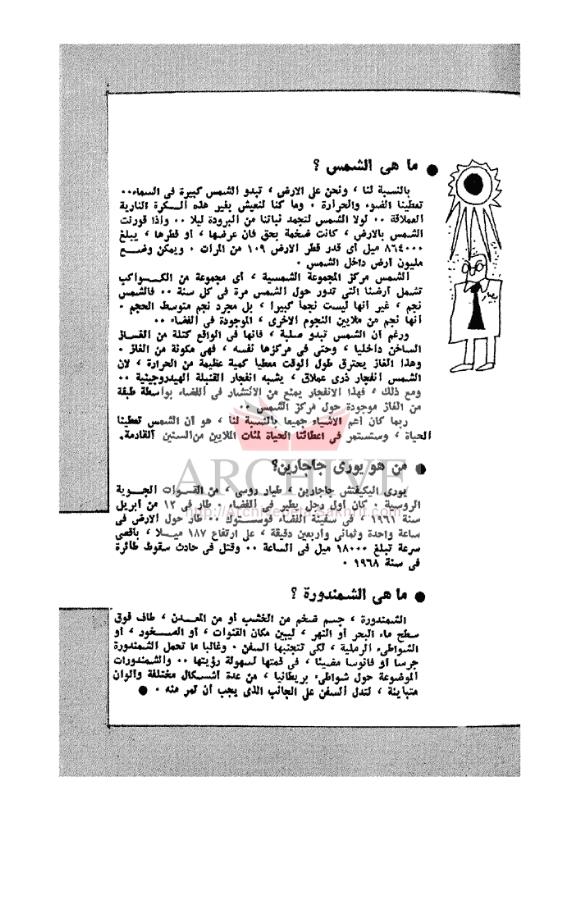 ● ما هى الشمس ؟
بالنسبة لنا ، ونحن على الارض ، تبدو الشمس كبيرة فى السماء٠٠
تعطينا الضوء والحرارة ٠ وما كنا لنعيش بغير هذه السكرة النارية
العملاقة ٠٠ لولا الشمس لتجمد نباتنا من البرودة ليلا ٠٠ واذا قورنت
الشمس بالارض ، كانت ضخمة بحق فان عرضها ، أو قطرها ، يبلغ
٨٦٤٠٠٠ ميل أى قدر قطر الارض ١٠٩ من المرات ٠ ويمكن وضع
مليون أرض داخل الشمس ٠
الشمس مركز المجموعة الشمسية ، أى مجموعة من الكواكب
تشمل أرضنا التى تدور حول الشمس مرة فى كل سنة ٠٠ فالشمس
نجم ، غير أنها ليست نجما كبيرا ، بل مجرد نجم متوسط الحجم ٠
أنها نجم من ملايين النجوم الاخرى ، الموجودة فى الفضاء ٠٠
ورغم أن الشمس تبدو صلبة ، فانها فى الواقع كتلة من الغساق
الساخن داخليا ، وحتى فى مركزها نفسه ، فهى مكونة من الغاز ٠
وهذا الغاز يحترق طول الوقت معطيا كمية عظيمة من الحرارة ، لان
الشمس انفجار ذرى عملاق ، يشبه انفجار القنبلة الهيدروجينية ٠٠
ومع ذلك ، فهذا الانفجار يمتنع من الانتشار فى الفضاء بواسطة طبقة
من الغاز موجودة حول مركز الشمس ٠٠
ربما كان أعم الاشياء جميعا بالنسبة لنا ، هو أن الشمس تعطينا
الحياة ، وستستمر فى اعطائنا الحياة لمئات الملايين من السنين القادمة٠
● من هو يورى جاجارين؟
يورى اليكيفتش جاجارين ، طيار روسى ، من القوات الجوية
الروسية ٠ كان أول رجل يطير فى الفضاء ٠ طار فى ١٢ من ابريل
سنة ١٩٦١ ، فى سفينة الفضاء فوستوك ٠٠ طار حول الارض فى
ساعة واحدة وثمانى وأربعين دقيقة ، على ارتفاع ١٨٧ ميلا ، بأقصى
سرعة تبلغ ١٨٠٠٠ ميل فى الساعة ٠٠ وقتل فى حادث سقوط طائرة
فى سنة ١٩٦٨ ٠
● ما هى الشمندورة ؟
الشمندورة ، جسم ضخم من الخشب أو من المعدن ، طاف فوق
سطح ماء البحر أو النهر ، ليبين مكان القنوات ، أو الصخور ، أو
الشواطىء الرملية ، لكى تتجنبها السفن ٠ وغالبا ما تحمل الشمندورة
جرسا أو فانوسا مضيئا ، فى قمتها لسهولة رؤيتها ٠٠ والشمندورات
الموضوعة حول شواطىء بريطانيا ، من عدة أشكال مختلفة والوان
متباينة ، لتدل السفن على الجانب الذى يجب أن تمر منه ٠ ●
ARCHIVE